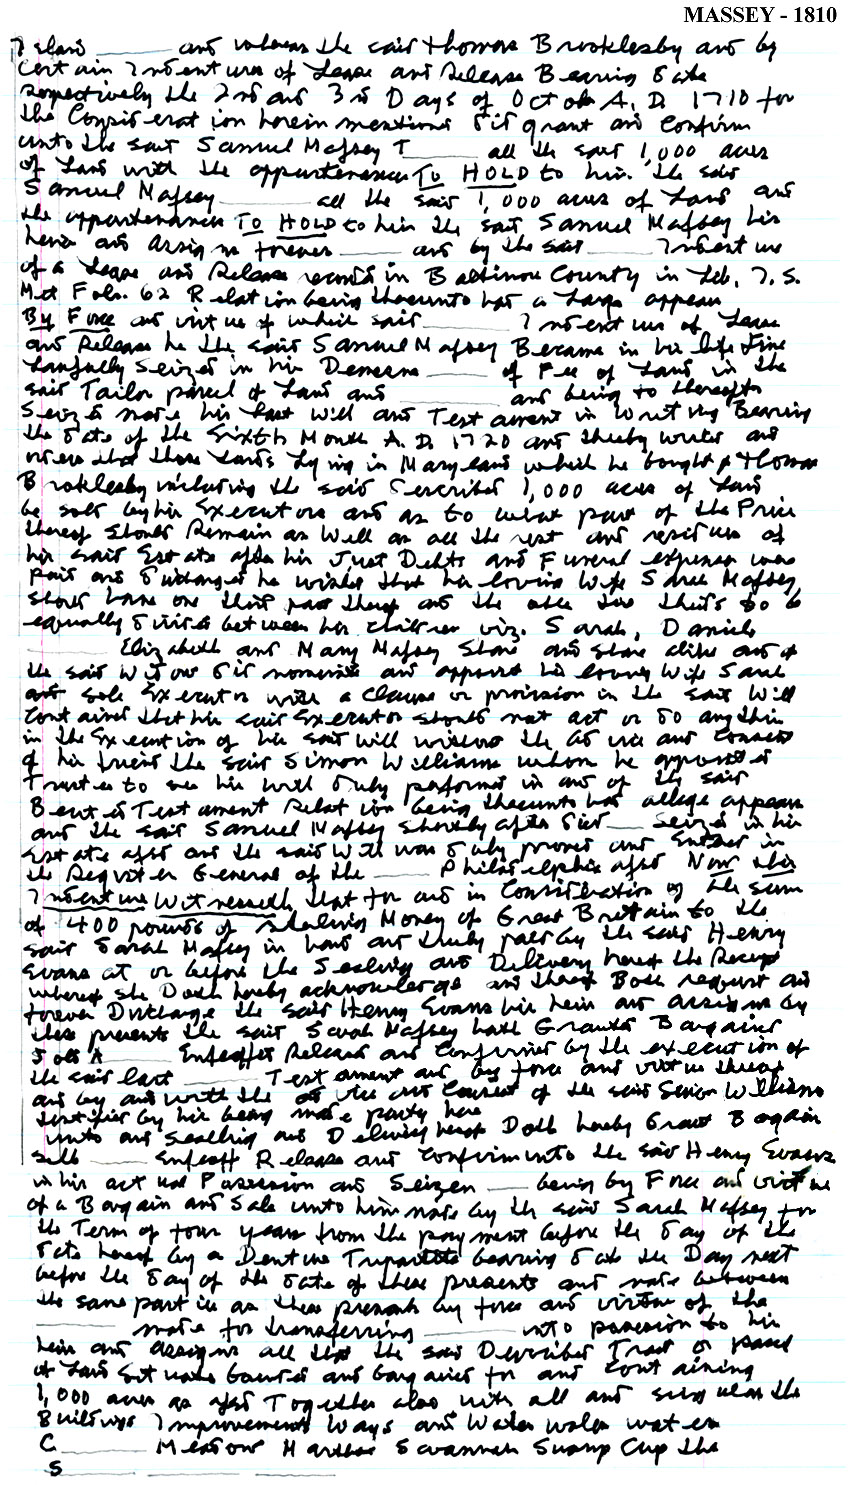 MASSEY - 1810
Island ______ and whereas the said Thomas Brooklesby and by
certain Indentures of Lease and Release Bearing date
respectively the 2nd and 3rd Days of October A.D. 1710 for
the Consideration herein mentioned did grant and Confirm
unto the said Samuel Massey T______ all the said 1,000 acres
of Land with the appurtenances TO HOLD to him the said
Samuel Massey ______ all the said 1,000 acres of Land and
the appurtenances TO HOLD to him the said Samuel Massey his
heirs and assigns forever ______ and by the said ______ Indenture
of a Lease and Release records in Baltimore County in Lib. T.S.
Folo. 62 Relation being thereunto had a Large appear
By Force and virtue of which said ______ Indentures of Lease
and Release he the said Samuel Massey Became in his life time
Lawfully Seized in his Demesne ______ of Fee of Land in the
said Tailor parcel of Land and ______ and being so thereof
Seized made his Last Will and Testament in Writing Bearing
the date of the Sixth Month A.D. 1720 and thereby writes and
orders that those Lands Lying in Maryland which he bought of Thomas
Brooklesby including the said described 1,000 acres of Land
be sold by his Executors and as to what part of the Price
thereof should Remain as Well as all the rest and residue of
his said Estate after his Just Debts and Funeral expenses were
paid and discharged he wishes that his loving Wife Sarah Massey
should have one third part thereof and the other two thirds to be
equally divided between his children viz. Sarah, Daniel
______ Elizabeth and Mary Massey Share and share alike and of
the said Widow did nominate and appoint his loving Wife Sarah
and sole Executor with a clause or provission in the said Will
contained that his said Executor should not act or do anything
in the Execution of his said Will without the advice and consent
of his friend the said Simon Williams whom he appointed
Trustee to see his Will duly performed in and of the said
Testament Relation being thereunto had allege appears
and the said Samuel Massey shortly after died ____ Seized in his
Estate afsd and the said Will was duly proved and Entered in
the Register General of the ______ Philadelphia afsd Now this
Indenture Witnesseth that for and in Consideration of the sum
of 400 pounds of Sterling Money of Great Britain to the
said Sarah Massey in hand and truly paid by the said Henry
Evans at or before the Sealing and Delivery hereof the Receipt
whereof she Doth hereby acknowledge and thereof Both request and
forever Discharge the said Henry Evans his heirs and assigns by
these presents the said Sarah Massey hath Granted Bargained
Sold A______ Enfeoffed Released and Confirmed by the execution of
the said last ______ Testament and by force and virtue thereof
and by and with the advice and Consent of the said Simon Williams
testified by his being made party here
unto and sealing and Delivery hereof Doth hereby Grant Bargain
Sell ______ Enfeoff Release and Confirm unto the said Henry Evans
in his actual Possession and Seizen ____ being by Force and virtue
of a Bargain and Sale unto him made by the said Sarah Massey for
the Term of four years from the payment before the day of the
date hereof by a Denture Tripartite bearing date the Day next
before the day of the date of these presents and made between
the same parties as these presents by force and virtue of the
______ made for transferring ______ into possession to his
heirs and assigns all that the said Described Tract or parcel
of Land situate bounded and bargained for and containing
1,000 acres as afsd Together also with all and singular the
Buildings Improvements Ways and Water
C______ Meadow Savannah Swamp the
S______ ______ ______